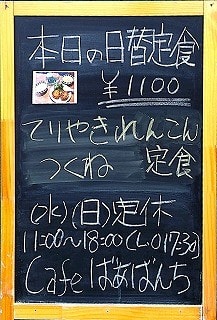 本日の日替定食
¥1100
てりやきれんこん
つくね 定食
(水)(日)定休
11:00〜18:00(L.O17:30)
Cafe ばあばんち